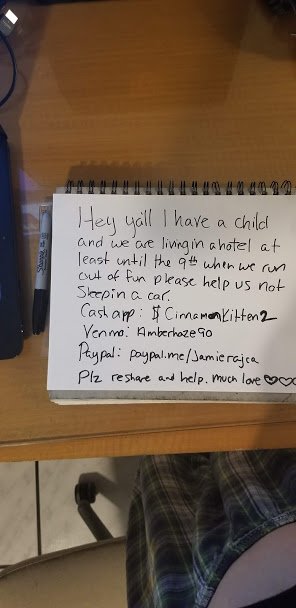 Hey yall I have a child
and we are living in a hotel at
least until the 9th when we run
out of fun please help us not
Sleep in a car.
Cash app: $CinnamonKitten2
Venmo: Amberhaze90
Paypal: paypal.me/Jamierajca
Plz reshare and help. much love ♡♡♡
Sharpie